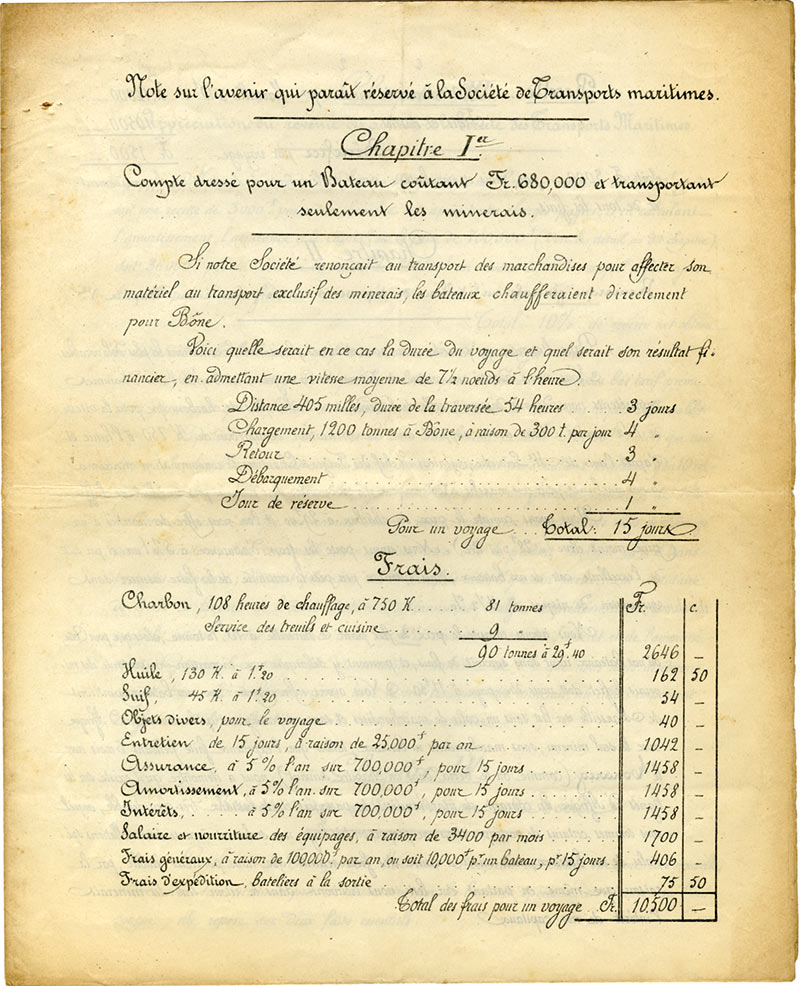 Note sur l'avenir qui paraît réservé à la Société de Transports maritimes.
Chapitre Ier
Compte dressé pour un Bateau coûtant Fr. 680,000 et transportant
seulement les minerais.
Si notre Société renonçait au transport des marchandises pour affecter son
matériel au transport exclusif des minerais, les bateaux chaufferaient directement
pour Bône.
Voici quelle serait en ce cas la durée du voyage et quel serait son résultat fi-
nancier, en admettant une vitesse moyenne de 7½ noeuds à l'heure.
Distance 405 milles, durée de la traversée 54 heures . . 3 jours
Chargement, 1200 tonnes à Bône, à raison de 300 t. par jour 4 "
Retour . . . . . . . . . . 3 "
Débarquement . . . . . . . . . . 4 "
Jour de réserve . . . . . . . . . . 1 "
Pour un voyage Total: 15 jours
Frais.
Fr. c.
Charbon, 108 heures de chauffage, à 750 K. . . . . . 81 tonnes
Service des treuils et cuisine . . . . . 9 "
90 tonnes à 29f.40 2646 _
Huile, 130 K. à 1f.20 . . . . . . . . . . 162 50
Suif, 45 K. à 1f.20 . . . . . . . . . . 54 _
Objets divers, pour le voyage . . . . . . . . . . 40 _
Entretien de 15 jours, à raison de 25,000f par an . . . . . 1042 _
Assurance, à 5% l'an sur 700,000f, pour 15 jours . . . . . 1458 _
Amortissement, à 5% l'an sur 700,000f, pour 15 jours . . . . . 1458 _
Intérêts, . . . . à 5% l'an sur 700,000f, pour 15 jours . . . . . 1458 _
Salaire et nourriture des équipages, à raison de 3400 par mois . . . . 1700 _
Frais généraux, à raison de 100,000f par an, ou soit 10,000f pr un bateau, pr 15 jours. 406 _
Frais d'expédition, bateliers à la sortie . . . . . . . . . . 75 50
Total des frais pour un voyage Fr. 10,500 _